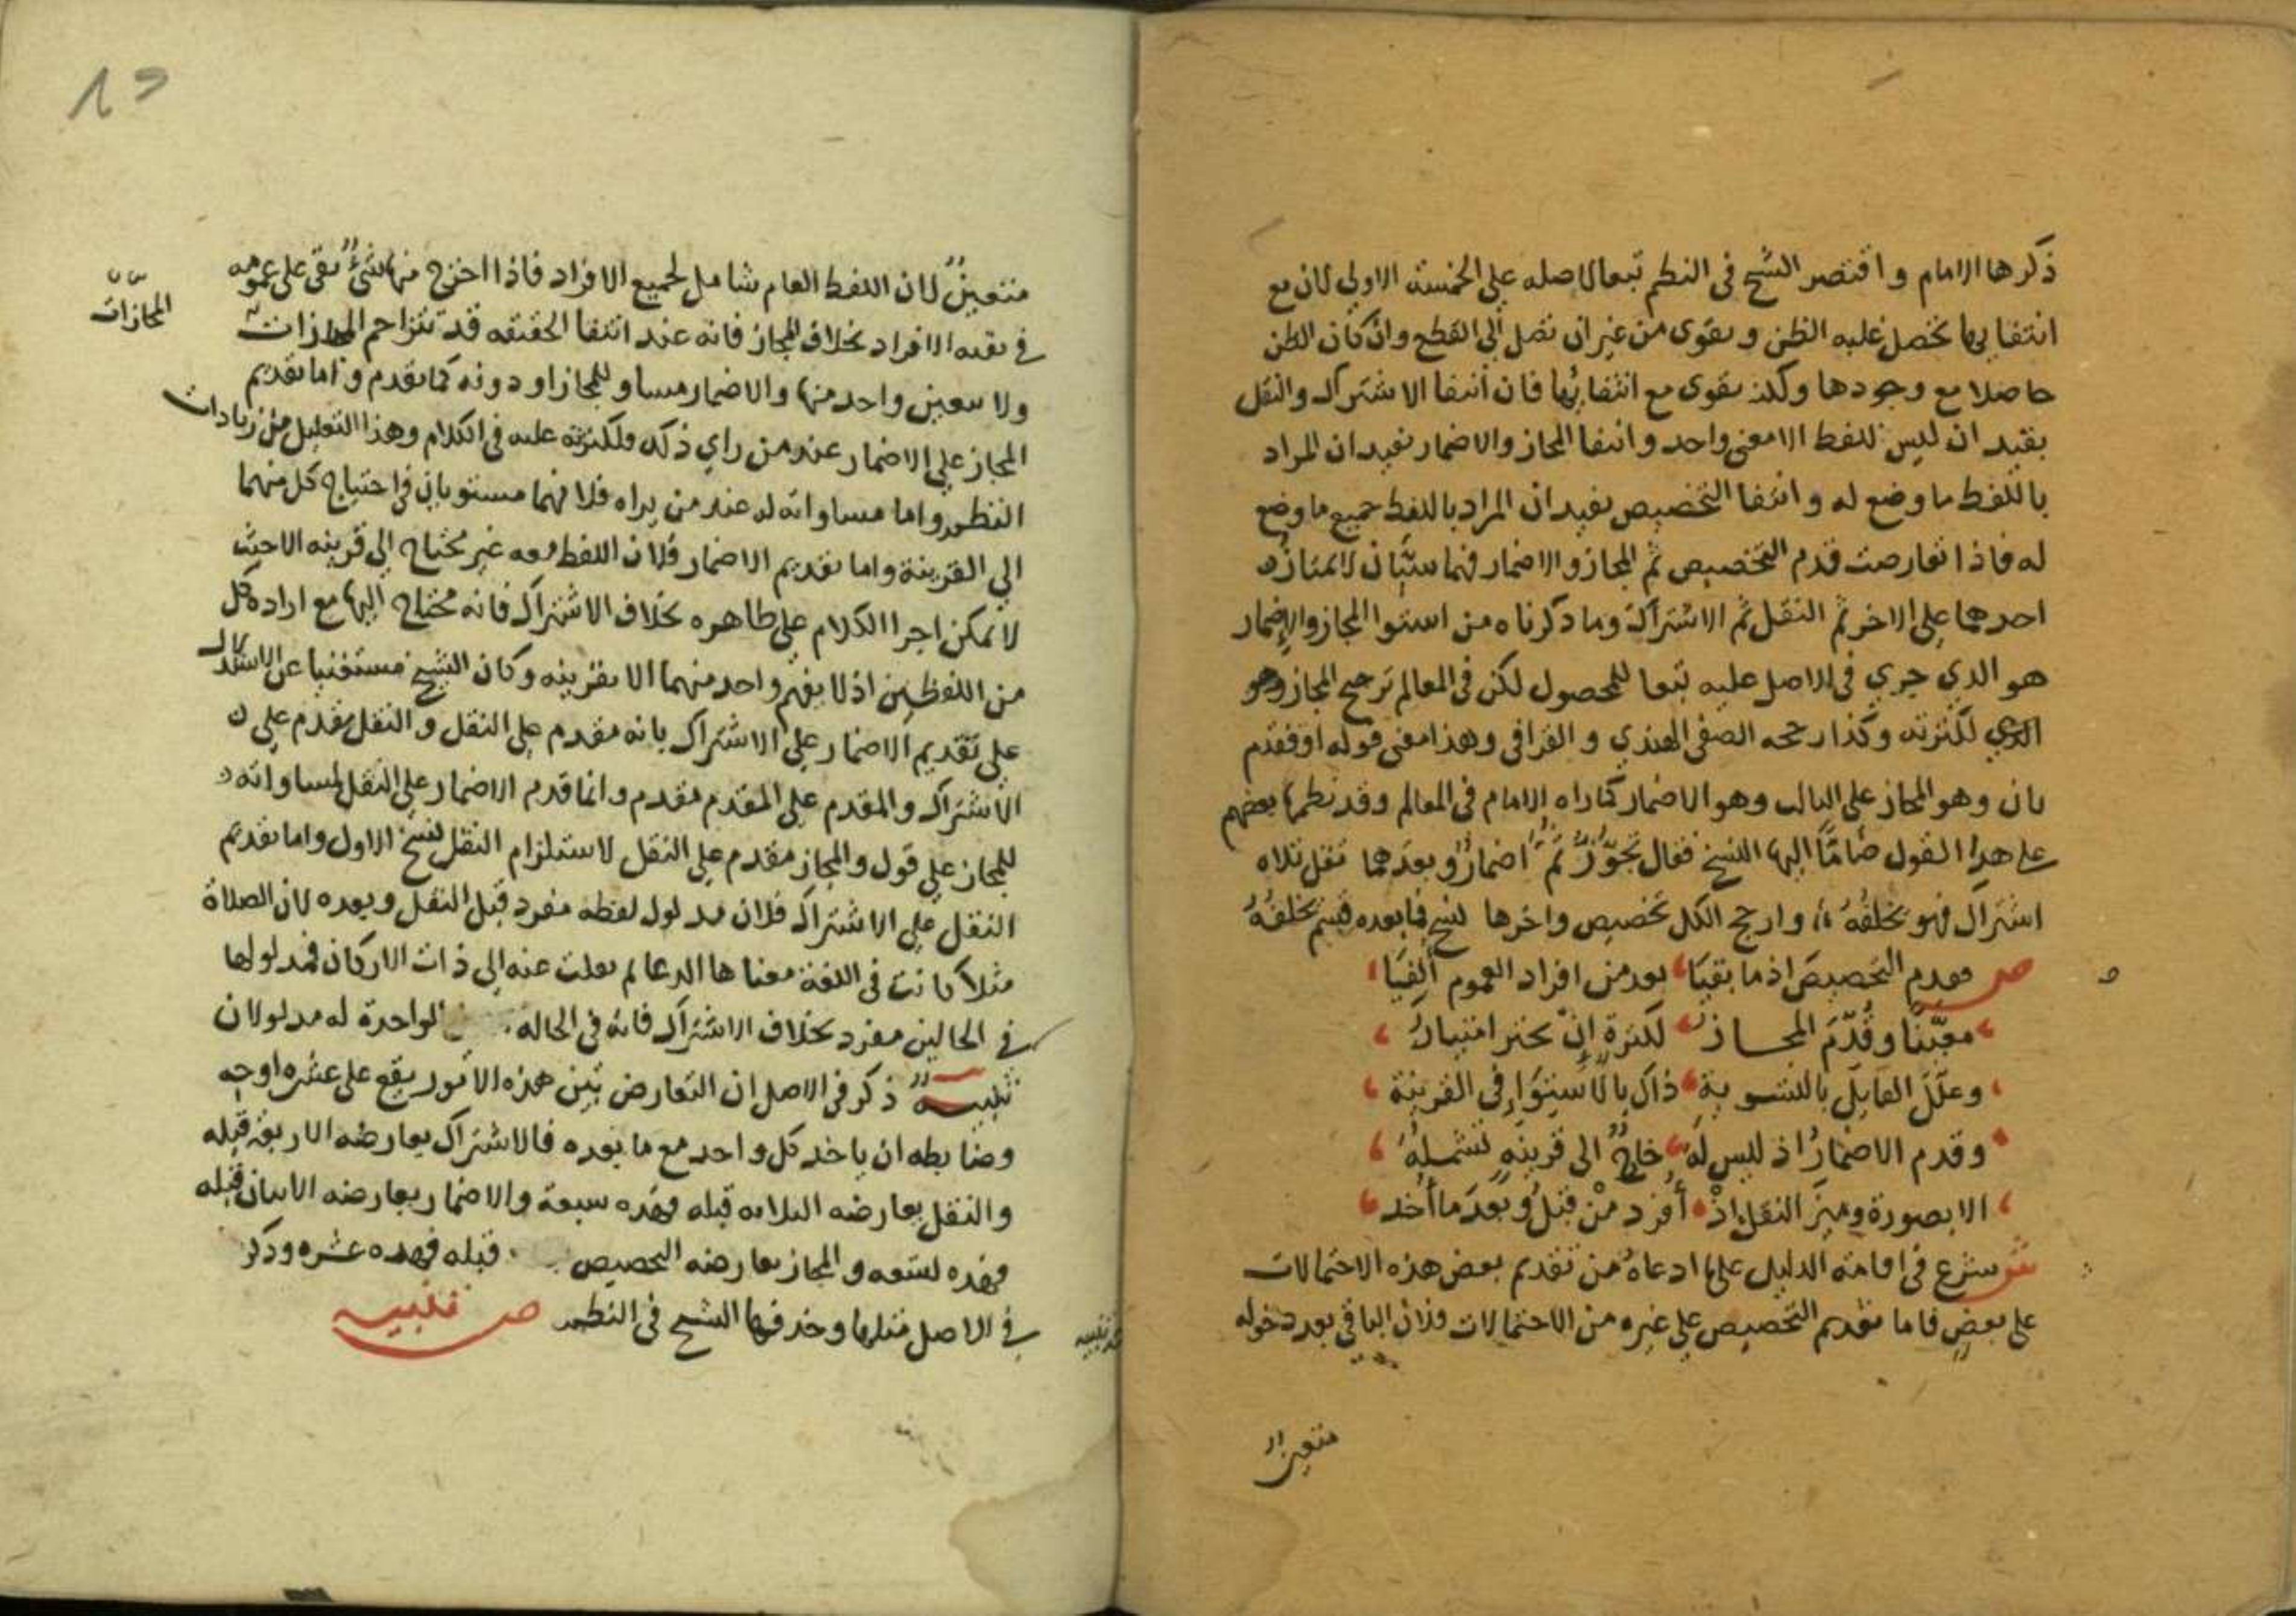 ذكرها الامام واقتصر الشيخ في النظم تبعا لاصله علي الخمسة الاولي لان مع
انتفايها يحصل غلبه الظن ويقوي من غير ان تصل الي القطع وان كان الظن
حاصلا مع وجودها ولكن يقوي مع انتفائها فان انتفا الاشتراك والنقل
يفيد ان ليس للفظ الا معني واحد وانتفا المجاز والاضمار يفيد ان المراد
باللفظ ما وضع له وانتفا التخصيص يفيد ان المراد باللفظ جميع ما وضع
له فاذا تعارضت قدم التخصيص ثم المجاز والاضمار فهما سيان لا يمتاز
احدهما علي الاخر ثم النقل ثم الاشتراك وما ذكرناه من استوا المجاز والاضمار
هو الذي جري في الاصل عليه تبعا للمحصول لكن في المعالم ترجيح المجاز وهو
الذي لكثرته وكذا رجحه الصفي الهندي والقرافي وهذا معني قوله او فقدم
ثان وهو المجاز علي الثالث وهو الاضمار كما راه الامام في المعالم وقد نظمها بعضهم
علي هذا القول ضاما اليها النسخ فقال تجوّزٌ ثم اضمارٌ وبعدهما نقل تلاه
اشتراك فهو يخلفه وارجح الكل تخصيص واخرها نسخ فما بعده قسم يخلفه
ص فقدم التخصيص اذ ما بقيا بعد من افراد العموم ألفيا
معيّنا وقُدّم المجاز لكثرة إن
وعلّل القايل بالتسوية ذاك بالاستوا في القرينة
وقدم الاضمار اذ ليس له حاجٌ الي قرينة تشمله
الا بصورة وميز النقل اذ أفرد من قبل وبعد ما أخذ
ش شرع في اقامة الدليل علي ما ادعاه من تقديم بعض هذه الاحتمالات
علي بعض فاما تقديم التخصيص علي غيره من الاحتمالات فلان الباقي بعد دخوله
متعينٌ
متعينٌ لان اللفظ العام شامل لجميع الافراد فاذا اخرج منها شيءٌ بقي علي عمومه
في بقيه الافراد بخلاف المجاز فانه عند انتفا الحقيقه قد تتزاحم المجازات
المجازات
ولا يتعين واحد منها والاضمار مساو للمجاز او دونه كما تقدم واما تقديم
المجاز علي الاضمار عند من راي ذلك فلكثرته عليه في الكلام وهذا التعليل من زيادات
النظم واما مساواته له عند من يراه فلانهما مستويان في احتياج كل منهما
الي القرينة واما تقديم الاضمار فلان اللفظ معه غير محتاج الي قرينه الا حيث
لا يمكن اجرا الكلام علي ظاهره بخلاف الاشتراك فانه محتاج اليها مع اراده كل
من اللفظين اذ لا يفهم واحد منهما الا بقرينه وكان الشيخ مستغنيا عن الاستدلال
علي تقديم الاضمار علي الاشتراك بانه مقدم علي النقل والنقل مقدم علي
الاشتراك والمقدم علي المقدم مقدم وانما قدم الاضمار علي النقل لمساواته
للمجاز علي قول والمجاز مقدم علي النقل لاستلزام النقل نسخ الاول واما تقديم
النقل علي الاشتراك فلان مدلول لفظه مفرد قبل النقل وبعده لان الصلاة
مثلا كانت في اللغة معناها الدعا ثم نقلت عنه الي ذات الاركان فمدلولها
في الحالين مفرد بخلاف الاشتراك فانه في الحاله الواحدة له مدلولان
تنبيهٌ ذكر في الاصل ان التعارض بين هذه الأمور يقع علي عشره اوجه
وضابطه ان ياخذ كل واحد مع ما بعده فالاشتراك يعارضه الاربعة قبله
والنقل يعارضه الثلاثه قبله فهذه سبعة والاضمار يعارضه الاثنان قبله
فهذه تسعه والمجاز يعارضه التخصيص قبله فهذه عشره وذكر
في الاصل مثلها وحذفها الشيخ في النظم ص تنبيه